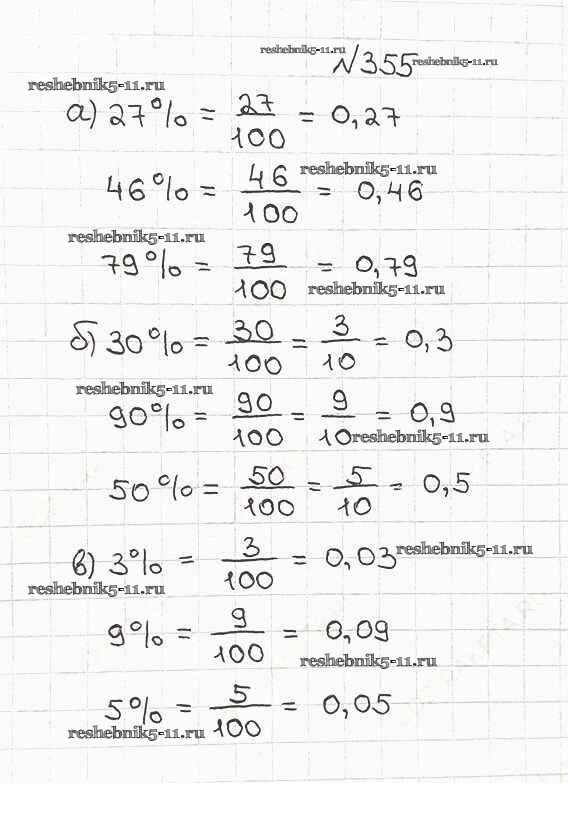 reshebnik5-11.ru
№355 reshebnik5-11.ru
reshebnik5-11.ru
а) 27% = 27/100 = 0,27
46% = 46/100 = 0,46
reshebnik5-11.ru
reshebnik5-11.ru
79% = 79/100 = 0,79
reshebnik5-11.ru
б) 30% = 30/100 = 3/10 = 0,3
reshebnik5-11.ru
90% = 90/100 = 9/10 = 0,9
reshebnik5-11.ru
50% = 50/100 = 5/10 = 0,5
в) 3% = 3/100 = 0,03
reshebnik5-11.ru
reshebnik5-11.ru
9% = 9/100 = 0,09
reshebnik5-11.ru
5% = 5/100 = 0,05
reshebnik5-11.ru